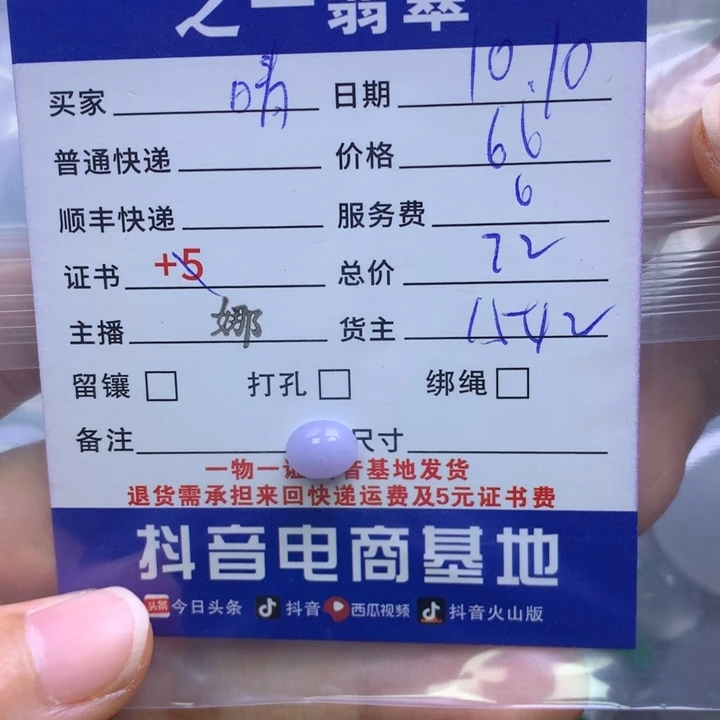 之一翡翠
买家 晴 日期 10.10
普通快递 价格 66
顺丰快递 服务费 6
证书 +5 总价 72
主播 娜 货主 1542
留镶 打孔 绑绳
备注 尺寸
一物一证 音基地发货
退货需承担来回快递运费及5元证书费
抖音电商基地
头条 今日头条 抖音 西瓜视频 抖音火山版